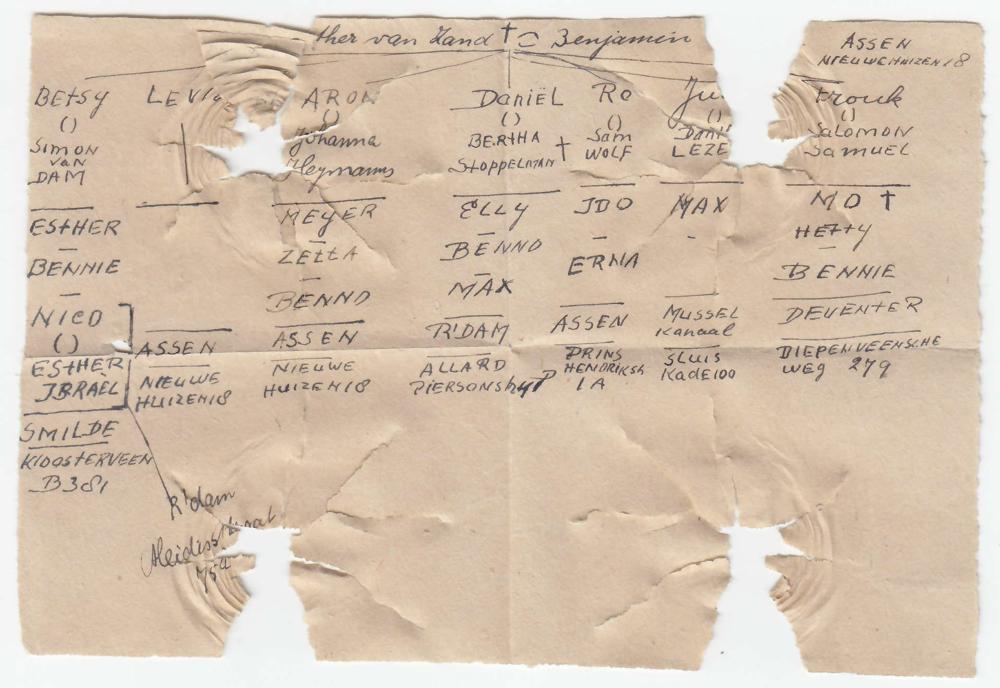 ther van Zand † Benjamin
ASSEN
NIEUWEHUIZEN 18
BETSY
()
SIMON
VAN
DAM
ESTHER
—
BENNIE
—
NICO
()
ESTHER
ISRAËL
SMILDE
KLOOSTERVEEN
B 381
R'dam
75a
LEVI
ASSEN
NIEUWE
HUIZEN 18
ARON
()
Johanna
Heymanns
MEYER
—
ZETTA
—
BENNO
ASSEN
NIEUWE
HUIZEN 18
Daniël
()
BERTHA
STOPPELMAN †
ELLY
—
BENNO
—
MAX
R'DAM
ALLARD
PIERSONSTR
Ro
()
Sam
WOLF
IDO
—
ERNA
ASSEN
PRINS
HENDRIKSTR
1A
Ju
()
Dani
LEZE
MAX
-
MUSSEL
Kanaal
SLUIS
Kade 100
Frouk
()
Salomon
Samuel
MO †
HETTY
—
BENNIE
DEVENTER
DIEPENVEENSCHE
WEG 279